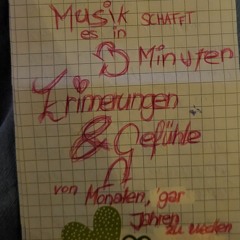 Musik SCHAFFT
es in
3 Minuten
Erinnerungen
& Gefühle
von Monaten, gar
Jahren
zu wecken